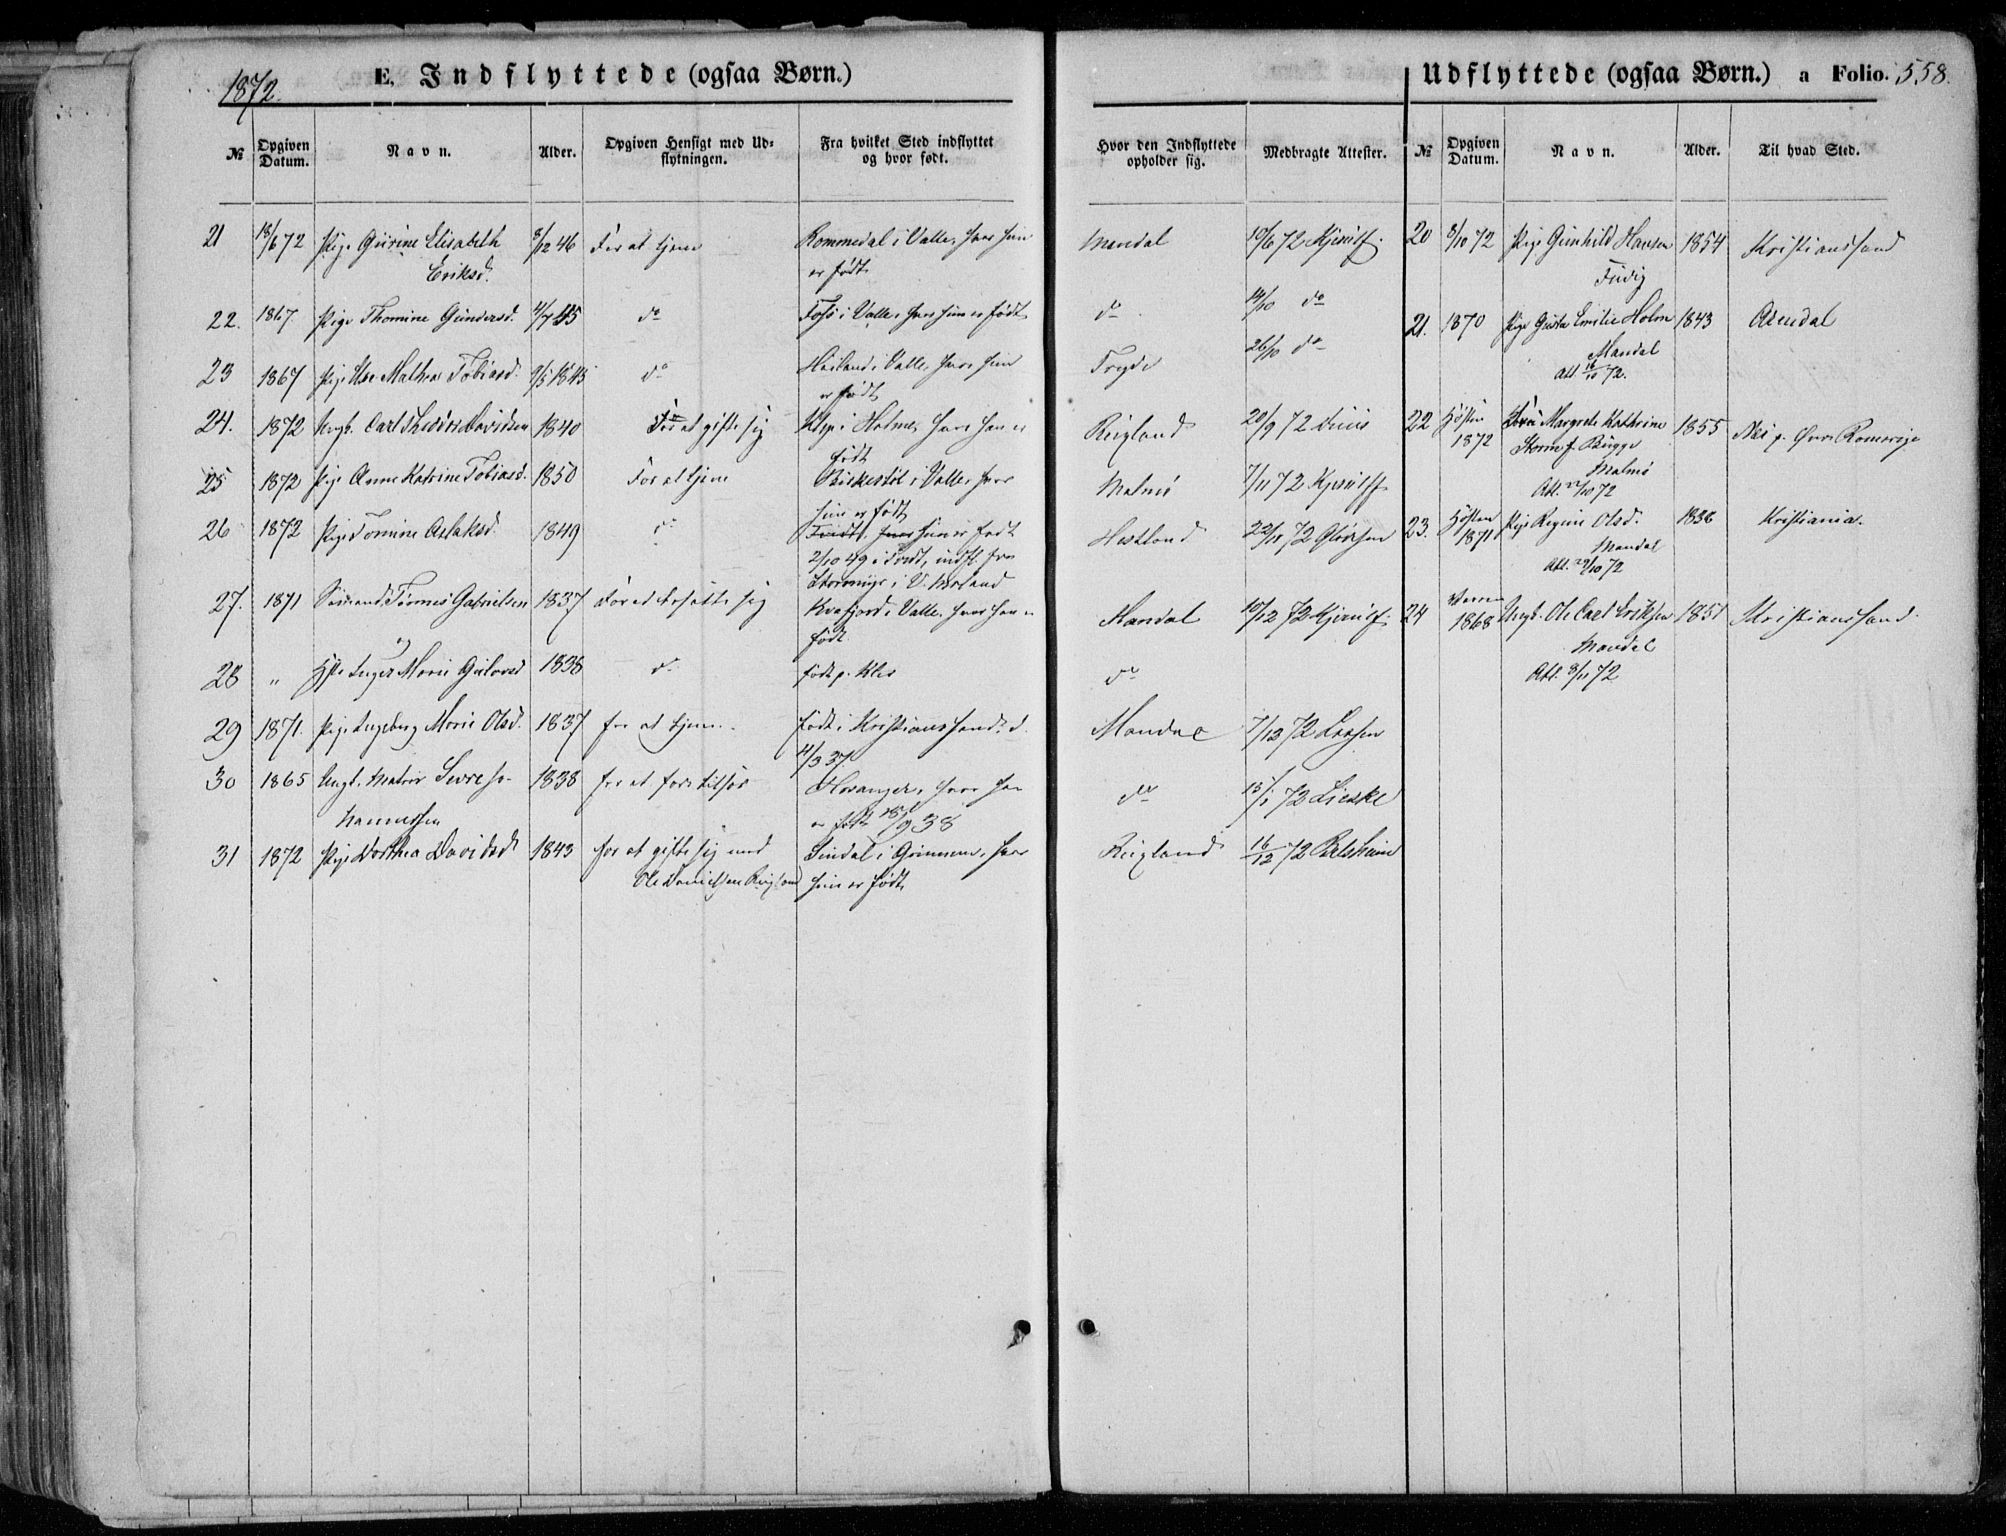 1872.
E. Indflyttede (ogsaa Børn.)
Udflyttede (ogsaa Børn.) a Folio. 558.
№ Opgiven Datum. Navn. Alder. Opgiven Hensigt med Udflytningen. Fra hvilket Sted indflyttet og hvor født. Hvor den Indflyttede opholder sig. Medbragte Attester.
№ Opgiven Datum. Navn. Alder. Til hvad Sted.
21 18/6 72 Pige Gurine Elisabeth 8/12 46 For at tjene Rommedal i Valle, hvor hun Mandal 19/6 72
Eriksd. er født
22. 1867. Pige Thomine Gundersd. 4/7 45 do Foss i Valle, hvor hun er født do 14/10 do
23 1867 Pige Mathea Tobiasd. 9/5 1845 do i Valle, hvor hun Tregde 26/10 do
er født
24. 1872 Ungk. Carl Theodor Davidsen 1840 For at gifte sig i Holme, hvor han er Rugland 20/9 72
født
25 1872 Pige Anne Katrine Tobiasd. 1850 For at tjene Birkestøl i Valle, hvor Malmø 7/11 72
hun er født
26 1872 Pige Tomine Aslaksd. 1849 do hun er født Hestland 22/11 72
2/10 49 i indfl. fra
Stormyr i
27. 1871 Sømand Tørres Gabrielsen 1837 For at bosætte sig i Valle, hvor han er Mandal 10/12 72
og født
28 " Inger Marie 1838 do født p. Klev do
29 1871. Pige Ingeborg Marie Olsd. 1837 for at tjene. født i Kristianssand d. Mandal 7/12 72
4/3 37.
30 1865 Ungk. Matros Sivert Jo- 1838 for at fare tilsjøs Hosanger, hvor han do 15/1 72 Lieske
hannessen er født 18/9 38
31 1872 Pige Dorthea Davidsd. 1843 for at gifte sig med Sindal i Grimenes, hvor Rugland 16/12 72
Ole Danielsen Rugland hun er født
20 8/10 72 Pige Gunhild Hansen 1854 Kristianssand
21. 1870 Pige Gusta Emilie Holm 1843 Arendal
Mandal
Att. 16/10 72.
22 Høsten 1872 Margrete Kathrine 1855 Nes p. Øvre Romerige
Storm f. Bugge
Malmø
Att. 72
23. Høsten 1871 Pige Regine Olsd. 1836 Kristiania.
Mandal
Att. 29/10 72
24 1868 Ungk. Ole Carl Eriksen 1851 Kristianssand.
Mandal
Att. 8/11 72